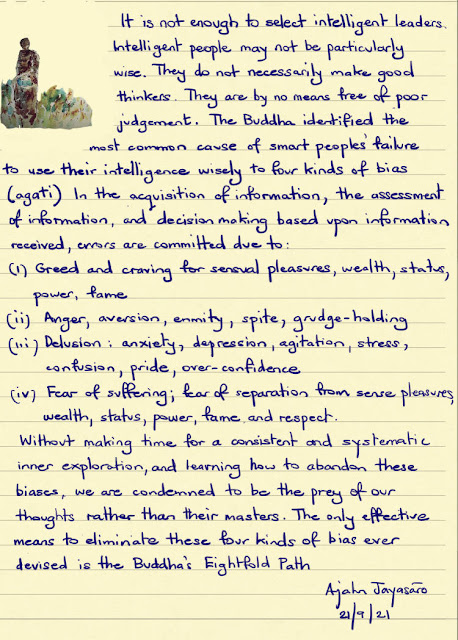 It is not enough to select intelligent leaders.
Intelligent people may not be particularly
wise. They do not necessarily make good
thinkers. They are by no means free of poor
judgement. The Buddha identified the
most common cause of smart peoples' failure
to use their intelligence wisely to four kinds of bias
(agati) In the acquisition of information, the assessment
of information, and decision making based upon information
received, errors are committed due to:
(i) Greed and craving for sensual pleasures, wealth, status,
power, fame
(ii) Anger, aversion, enmity, spite, grudge-holding
(iii) Delusion: anxiety, depression, agitation, stress,
confusion, pride, over-confidence
(iv) Fear of suffering; fear of separation from sense pleasures,
wealth, status, power, fame and respect.
Without making time for a consistent and systematic
inner exploration, and learning how to abandon these
biases, we are condemned to be the prey of our
thoughts rather than their masters. The only effective
means to eliminate these four kinds of bias ever
devised is the Buddha's Eightfold Path
Ajahn Jayasāro
21/9/21